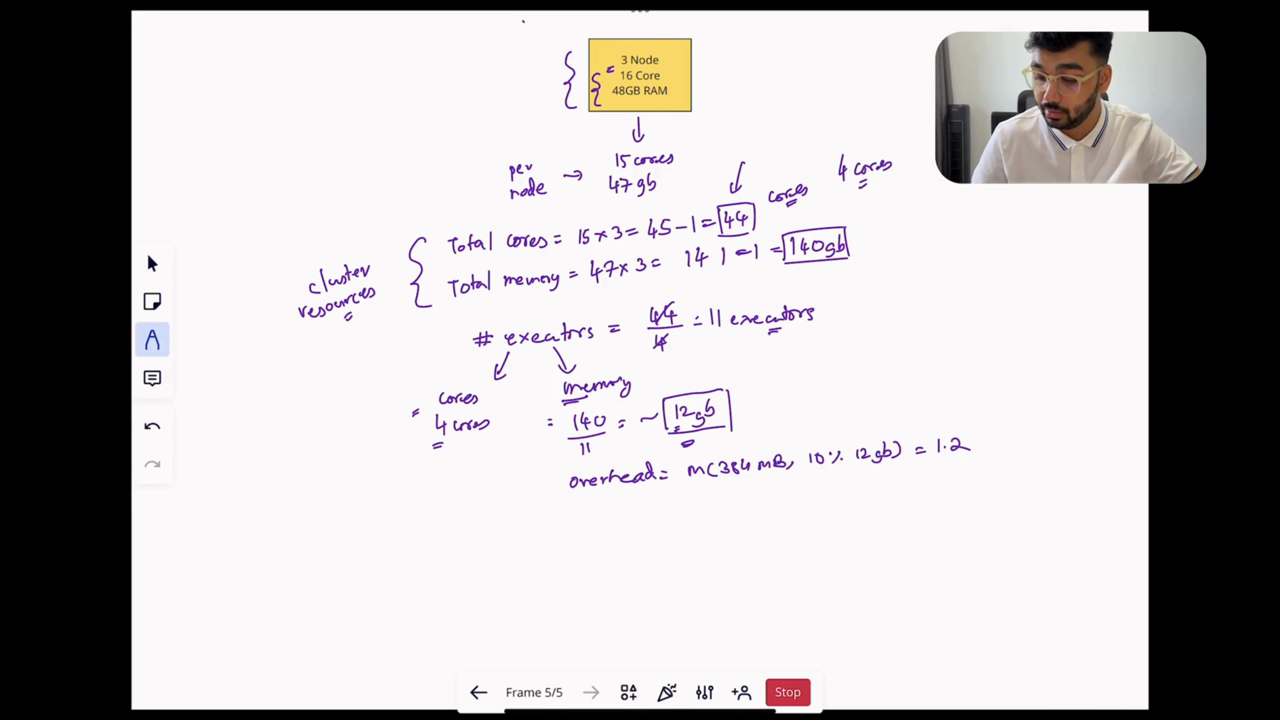 3 Node
16 Core
48GB RAM
per node → 15 cores
47 gb
4 cores
cores
cluster resources
Total cores = 15 x 3 = 45 - 1 = 44
Total memory = 47 x 3 = 141 - 1 = 140gb
# executors = 44/4 = 11 executors
cores
= 4 cores
memory
= 140/11 = ~ 12gb
overhead = m(384 MB, 10% 12gb) = 1.2
Frame 5/5
Stop